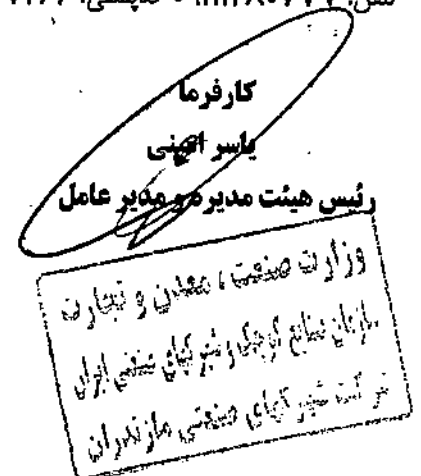 کارفرما
یاسر امینی
رئیس هیئت مدیره و مدیر عامل
وزارت صنعت، معدن و تجارت
سازمان صنایع کوچک و شهرکهای صنعتی ایران
شرکت شهرکهای صنعتی مازندران